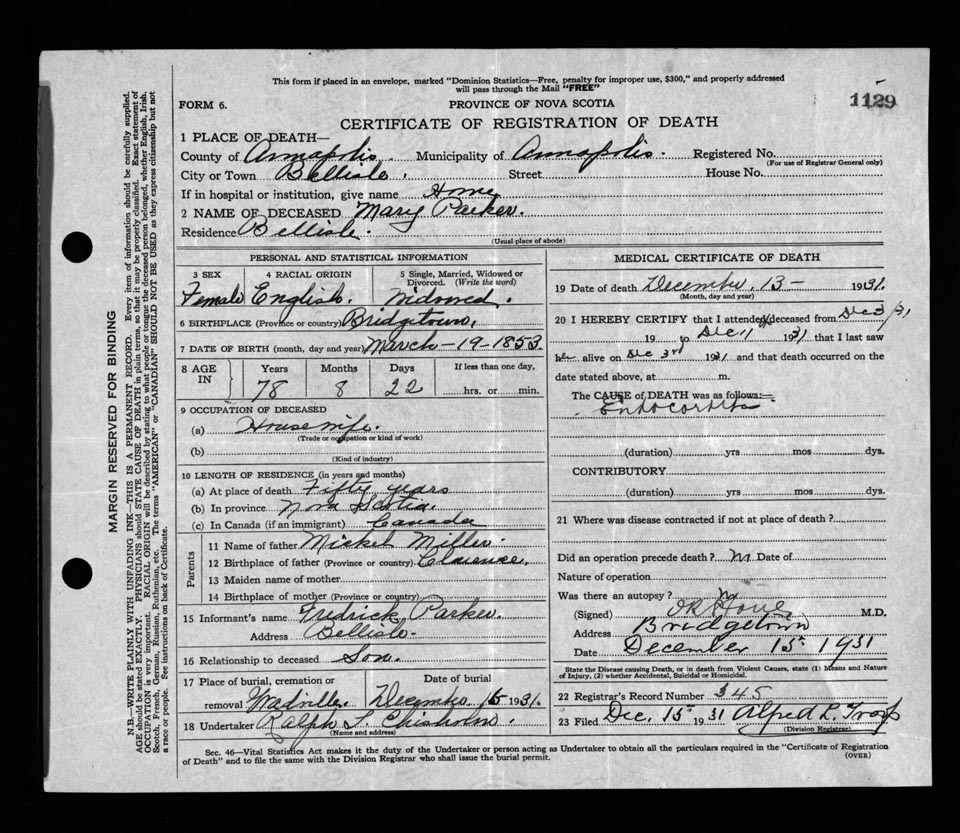 This form if placed in an envelope, marked "Dominion Statistics—Free, penalty for improper use, $300," and properly addressed
will pass through the Mail "FREE"
1129
FORM 6.
PROVINCE OF NOVA SCOTIA
CERTIFICATE OF REGISTRATION OF DEATH
1 PLACE OF DEATH—
County of Annapolis. Municipality of Annapolis. Registered No.
(For use of Registrar General only)
City or Town Bellisle. Street House No.
If in hospital or institution, give name Home
2 NAME OF DECEASED Mary Parker.
Residence Bellisle.
(Usual place of abode)
PERSONAL AND STATISTICAL INFORMATION
3 SEX 4 RACIAL ORIGIN 5 Single, Married, Widowed or Divorced. (Write the word)
Female English. Widowed.
6 BIRTHPLACE (Province or country) Bridgetown,
7 DATE OF BIRTH (month, day and year) March-19-1853
8 AGE IN Years Months Days If less than one day,
78 8 22 hrs. or min.
9 OCCUPATION OF DECEASED
(a) Housewife.
(Trade or occupation or kind of work)
(b)
(Kind of industry)
10 LENGTH OF RESIDENCE (in years and months)
(a) At place of death Fifty years
(b) In province Nova Scotia.
(c) In Canada (if an immigrant) Canada
Parents
11 Name of father Mickel Miller.
12 Birthplace of father (Province or country) Clarence.
13 Maiden name of mother
14 Birthplace of mother (Province or country)
15 Informant's name Fredrick Parker
Address Bellisle.
16 Relationship to deceased Son.
17 Place of burial, cremation or removal Date of burial
December 15 1931.
18 Undertaker Ralph S. Chisholm.
(Name and address)
MEDICAL CERTIFICATE OF DEATH
19 Date of death December, 13- 1931.
(Month, day and year)
20 I HEREBY CERTIFY that I attended deceased from Dec 3/31
19 to Dec 11 1931 that I last saw
her alive on Dec 3rd 1931 and that death occurred on
date stated above, at m.
The CAUSE of DEATH was as follows:—
Endocarditis
(duration) yrs mos dys.
CONTRIBUTORY
(duration) yrs mos dys.
21 Where was disease contracted if not at place of death?
Did an operation precede death? No Date of
Nature of operation
Was there an autopsy? No
(Signed) M.D.
Address Bridgetown
Date December 15th 1931
State the Disease causing Death, or in death from Violent Causes, state (1) Means and Nature
of Injury, (2) whether Accidental, Suicidal or Homicidal.
22 Registrar's Record Number 345
23 Filed Dec. 15th 1931 Alfred L. Troop
(Division Registrar)
Sec. 46—Vital Statistics Act makes it the duty of the Undertaker or person acting as Undertaker to obtain all the particulars required in the "Certificate of Registration
of Death" and to file the same with the Division Registrar who shall issue the burial permit.
(OVER)
MARGIN RESERVED FOR BINDING
N.B.—WRITE PLAINLY WITH UNFADING INK—THIS IS A PERMANENT RECORD. Every item of information should be carefully supplied.
AGE should be stated EXACTLY. PHYSICIANS should STATE CAUSE OF DEATH in plain terms, so that it may be properly classified. Exact statement of
OCCUPATION is very important. RACIAL ORIGIN will be described by stating to what people or tongue the deceased person belonged, whether English, Irish,
Scotch, French, German, Russian, Ruthenian, etc. The terms "AMERICAN" or "CANADIAN" SHOULD NOT BE USED as they express citizenship but not
a race or people. See instructions on back of Certificate.